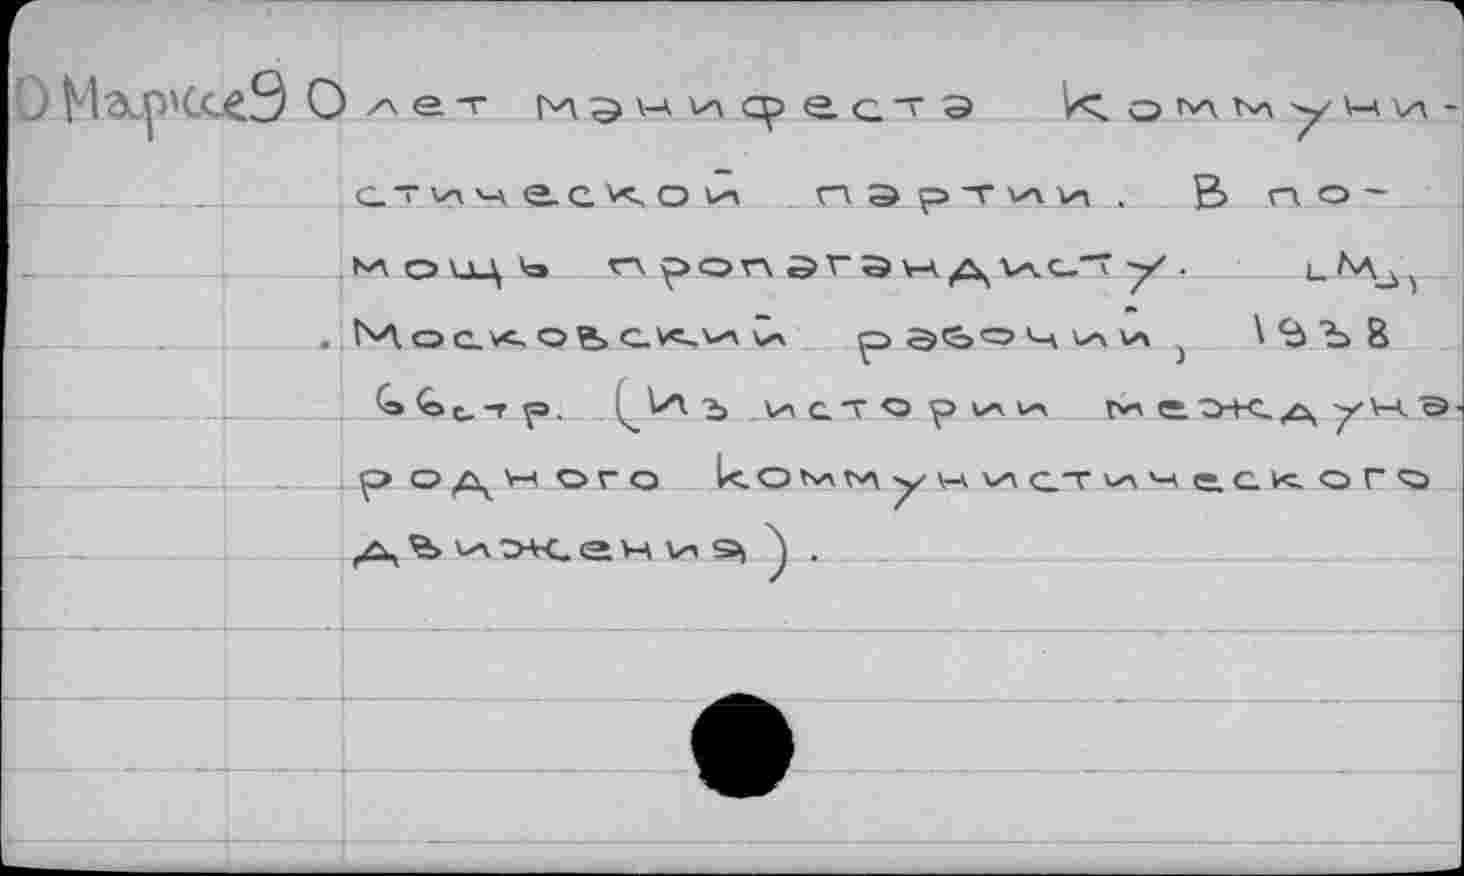 О Марксе 90 лет манифеста Коммуни-
стической партии. В по-
мощь пропагандисту. [М.],
Московский рабочий, 1938
66стр. (Из истории междуна-
родного коммунистического
движения).